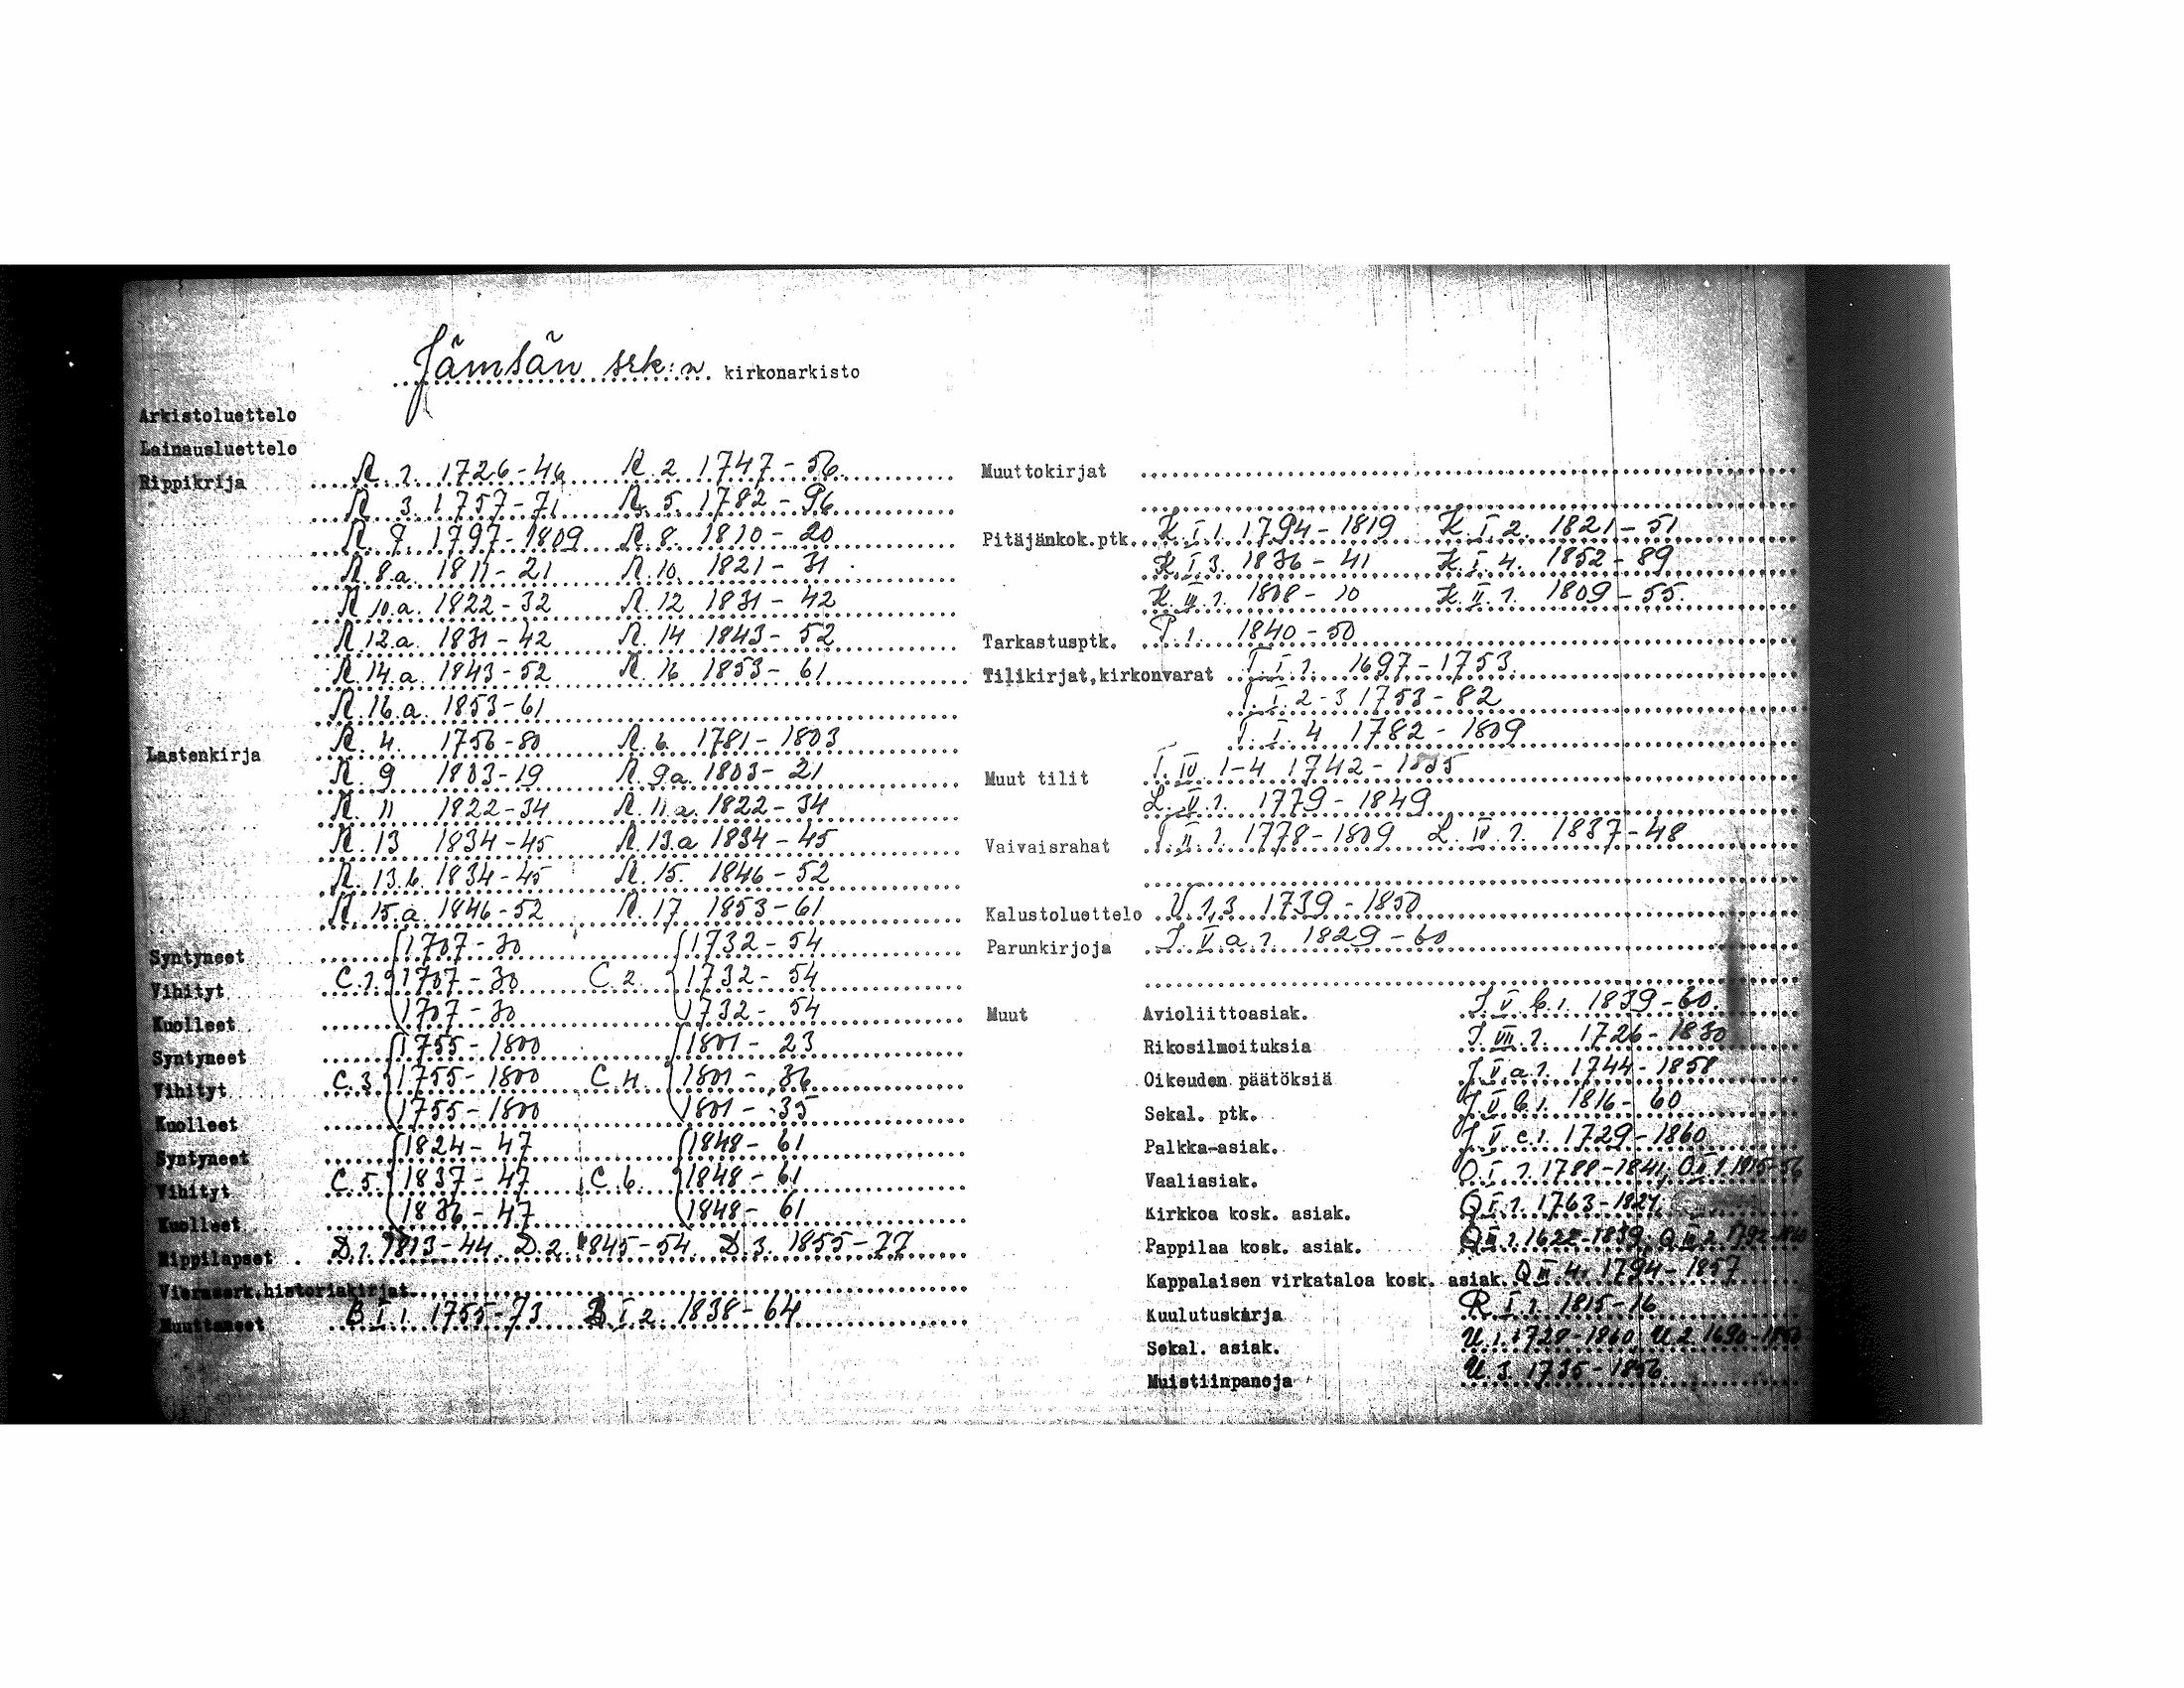 Jämsän srk:n kirkonarkisto
Arkistoluettelo
Lainausluettelo
Rippikrija A. 1. 1726-46 A. 2 1747-56.
A. 3. 1757-71 A. 5. 1782-96
A. 7. 1797-1809 A. 8. 1810-20
A. 8.a. 1811-21 A. 10. 1821-31
A 10.a. 1822-32 A. 12 1831-42
A 12.a. 1831-42 A. 14 1843-52
A. 14.a. 1843-52 A. 16 1853-61
A. 16.a. 1853-61
Lastenkirja A. 4. 1756-80 A. 6. 1781-1803
A. 9 1803-19 A. 9a. 1803-21
A. 11 1822-34 A. 11.a. 1822-34
A. 13 1834-45 A. 13.a 1834-45
A. 13.b. 1834-45 A. 15. 1846-52
A. 15.a. 1846-52 A. 17 1853-61
Syntyneet 1707-30 1732-54
Vihityt C. 1. 1707-30 C. 2. 1732-54
Kuolleet 1707-30 1732-54
Syntyneet 1755-1800 1801-23
Vihityt C. 3. 1755-1800 C. 4. 1801-36
Kuolleet 1755-1800 1801-35
Syntyneet 1824-47 1848-61
Vihityt C. 5. 1837-47 C. 6. 1848-61
Kuolleet 1836-47 1848-61
Rippilapset D. 1. 1813-44. D. 2. 1845-54. D. 3. 1855-77
Vierassrk.historiakirjat
Muuttaneet B I 1. 1755-73 B I 2. 1838-64
Muuttokirjat
Pitäjänkok.ptk. K. I 1. 1794-1819 K. I 2. 1821-51
K. I 3. 1836-41 K. I. 4. 1852-89
K. III. 1. 1808-10 K. II. 1. 1809-55.
Tarkastusptk. P. 1. 1840-50
Tilikirjat,kirkonvarat T. I. 1. 1697-1753.
T. I. 2-3 1753-82
T. I. 4 1782-1809
Muut tilit T. IV. 1-4 1742-
L. V. 1. 1779-1849
Vaivaisrahat T. II. 1. 1778-1809 L. IV. 1. 1837-48
Kalustoluettelo V 1,3 1739-1850
Parunkirjoja J. V. a. 1. 1829-60
Muut Avioliittoasiak. J V. b. 1. 1839-60.
Rikosilmoituksia J. VII. 1. 1726-1830
Oikeuden päätöksiä J V a 1. 1744-1858
Sekal. ptk. J V b. 1. 1816-60
Palkka-asiak. J. V c. 1. 1729-1860
Vaaliasiak. O. I 1. 1788-1841, O. II 1.
Kirkkoa kosk. asiak. Q I. 1. 1763-1827,
Pappilaa kosk. asiak. Q II. 1. 1622-1839, Q II 2.
Kappalaisen virkataloa kosk. asiak. Q II 4. 1794-1857
Kuulutuskirja R. I. 1. 1815-16
Sekal. asiak. U. 1. 1728-1860 U. 2. 1690-
Muistiinpanoja U. 3. 1735-1856